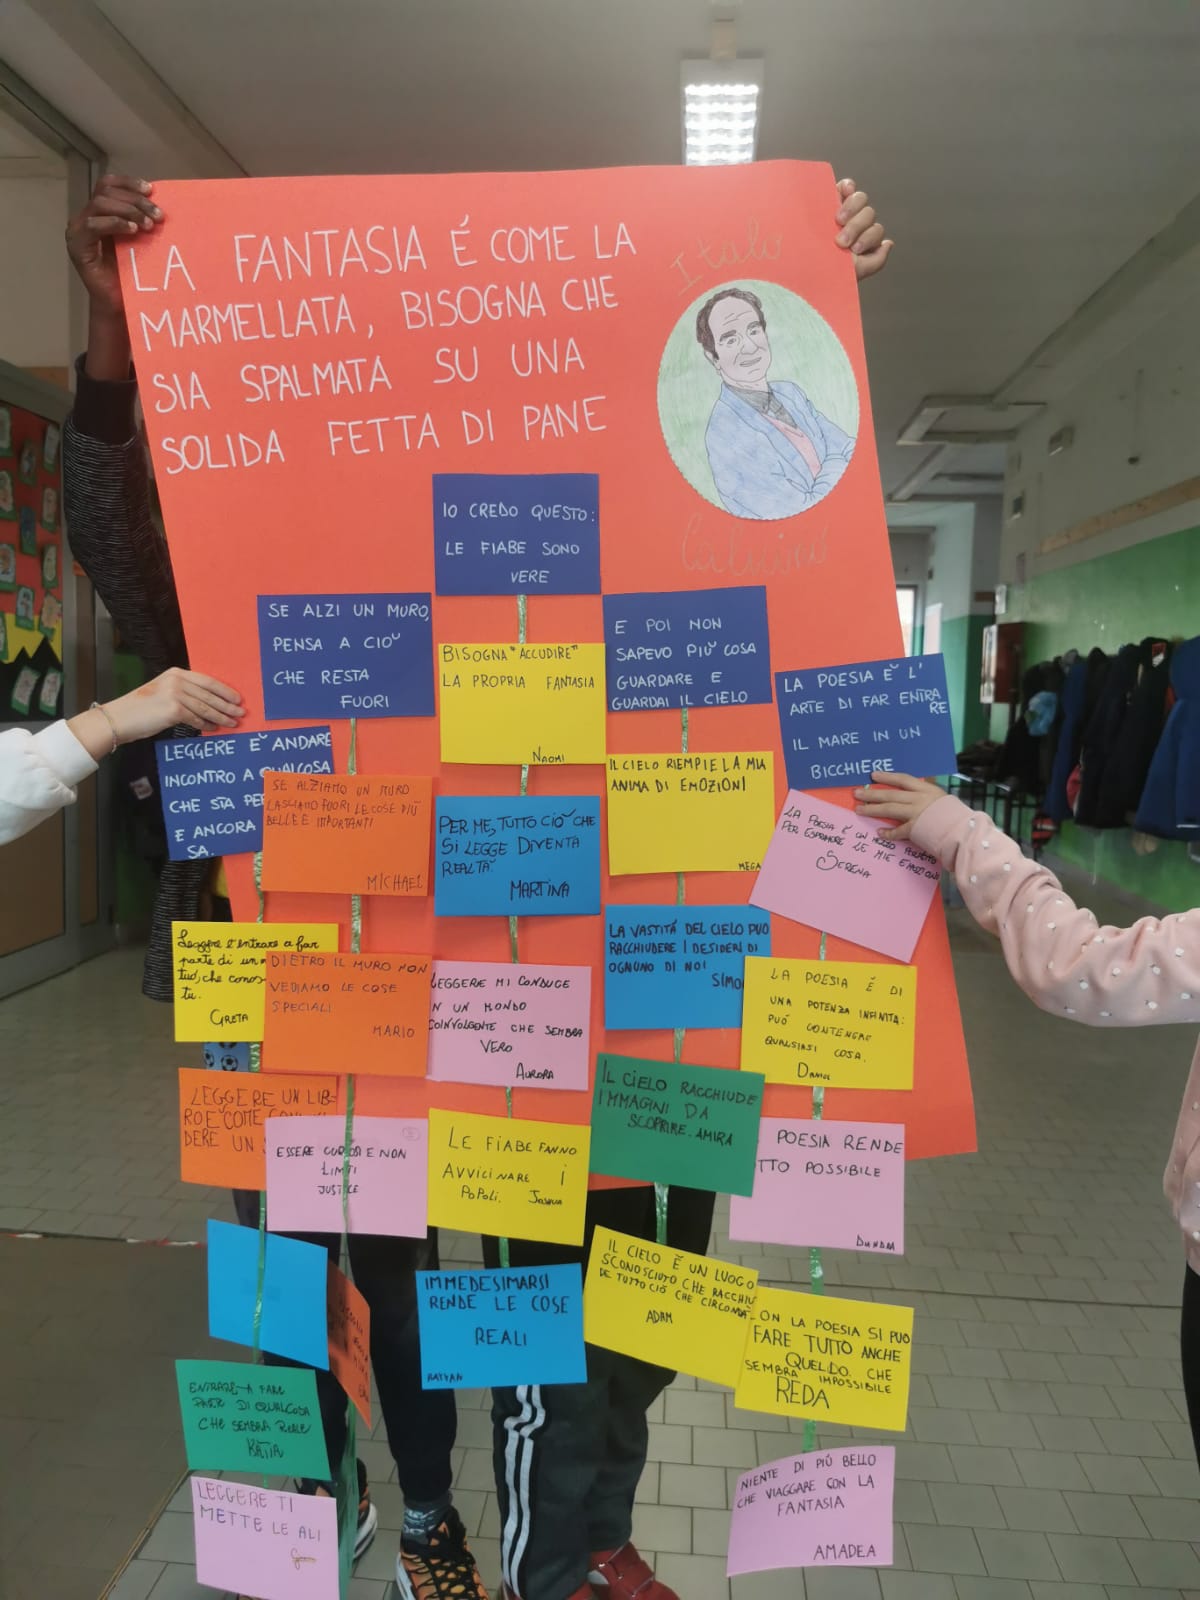 LA FANTASIA É COME LA
MARMELLATA, BISOGNA CHE
SIA SPALMATA SU UNA
SOLIDA FETTA DI PANE
Italo
Calvino
IO CREDO QUESTO:
LE FIABE SONO
VERE
SE ALZI UN MURO,
PENSA A CIO'
CHE RESTA
FUORI
E POI NON
SAPEVO PIU' COSA
GUARDARE E
GUARDAI IL CIELO
LA POESIA É L'
ARTE DI FAR ENTRA
RE
IL MARE IN UN
BICCHIERE
LEGGERE E' ANDARE
INCONTRO A QUALCOSA
CHE STA PER
E ANCORA
SA.
BISOGNA "ACCUDIRE"
LA PROPRIA FANTASIA
NAOMI
SE ALZIAMO UN MURO
LASCIAMO FUORI LE COSE PIÙ
BELLE E IMPORTANTI
MICHAEL
PER ME, TUTTO CIO' CHE
SI LEGGE DIVENTA
REALTÀ.
MARTINA
IL CIELO RIEMPIE LA MIA
ANIMA DI EMOZIONI
MEGA
LA POESIA É UN MEZZO PERFETTO
PER ESPRIMERE LE MIE EMOZIONI
SERENA
Leggere é entrare a far
parte di un
tuo, che conos-
tu.
GRETA
DIETRO IL MURO NON
VEDIAMO LE COSE
SPECIALI
MARIO
LEGGERE MI CONDUCE
IN UN MONDO
COINVOLGENTE CHE SEMBRA
VERO
AURORA
LA VASTITÀ DEL CIELO PUÒ
RACCHIUDERE I DESIDERI DI
OGNUNO DI NOI
SIMO
LA POESIA É DI
UNA POTENZA INFINITA:
PUÓ CONTENERE
QUALSIASI COSA.
LEGGERE UN LIB-
RO E' COME
DERE UN
ESSERE CURIOSI E NON
LIMITI
JUSTICE
LE FIABE FANNO
AVVICINARE I
POPOLI. JOSHUA
IL CIELO RACCHIUDE
IMMAGINI DA
SCOPRIRE. AMIRA
POESIA RENDE
TTO POSSIBILE
IMMEDESIMARSI
RENDE LE COSE
REALI
RAYYAN
IL CIELO É UN LUOGO
SCONOSCIUTO CHE RACCHIU
DE TUTTO CIÓ CHE CIRCONDA
ADAM
ON LA POESIA SI PUO
FARE TUTTO ANCHE
QUELLO CHE
SEMBRA IMPOSSIBILE
REDA
ENTRARE A FARE
PARTE DI QUALCOSA
CHE SEMBRA REALE
KATIA
LEGGERE TI
METTE LE ALI
NIENTE DI PIÚ BELLO
CHE VIAGGARE CON LA
FANTASIA
AMADEA